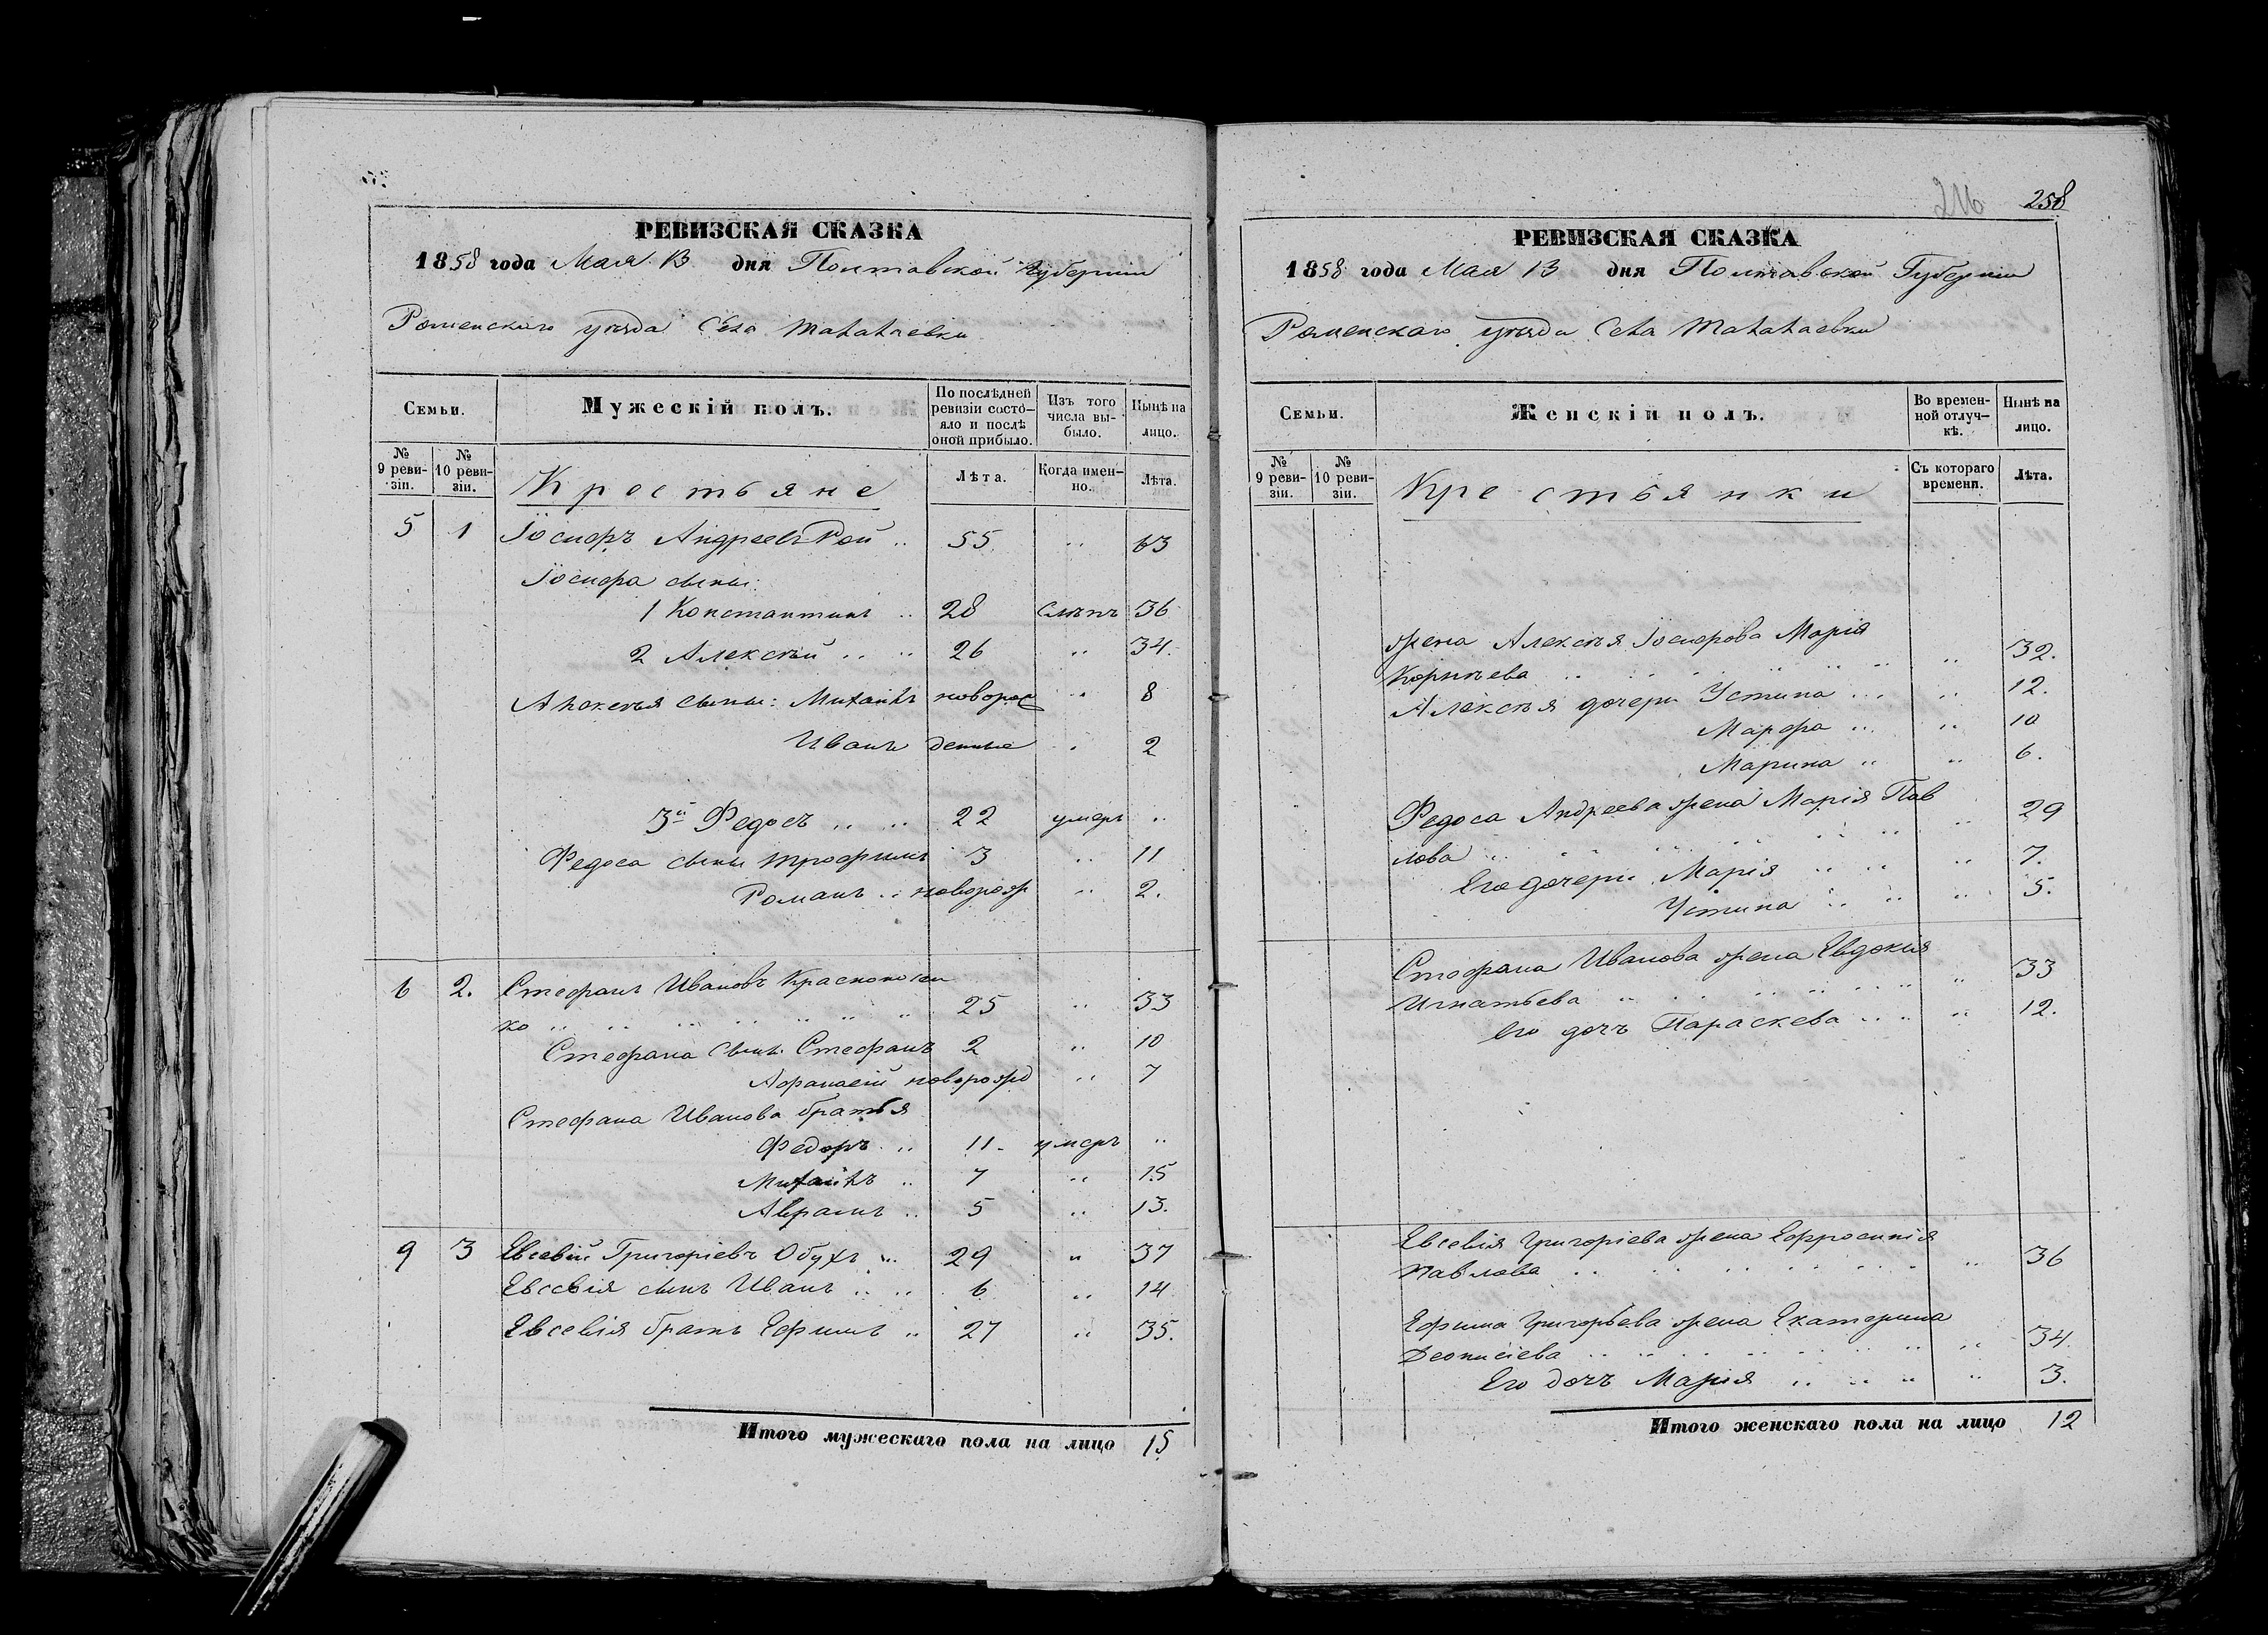 РЕВИЗСКАЯ СКАЗКА
1858 года Мая 13 дня Полтавской Губернии
Роменскаго уѣзда Села Талалаевки
Семьи.
Мужескій полъ.
По послѣдней ревизіи состо-яло и послѣ оной прибыло.
Изъ того числа вы-было.
Нынѣ на лицо.
№ 9 реви-зіи.
№ 10 реви-зіи.
Крестьяне
Лѣта.
Когда имен-но.
Лѣта.
5 1 Іосифъ Андреевъ Рой .. 55 .. 63
Іосифа сыны:
1 Константинъ .. 28 слѣпъ 36
2 Алексѣй .. .. 26 .. 34.
Алексѣя сыны: Михаилъ новорож .. 8
Иванъ денные . 2
3й Федосъ .. .. 22 умеръ ..
Федоса сыны Трофимъ 3 .. 11
Романъ .. новорож .. 2.
6 2. Стефанъ Ивановъ Красноножен
ко .. .. .. .. .. .. .. 25 .. 33
Стефана сынъ. Стефанъ 2 .. 10
Афанасій новорожд .. 7
Стефана Иванова братья
Федоръ .. 11. умеръ ..
Михаилъ .. 7 .. 15
Аврамъ .. 5 .. 13.
9 3 Евсевій Григоріевъ Обухъ .. 29 .. 37
Евсевія сынъ Иванъ .. .. 6 .. 14
Евсевія братъ Ефимъ .. 27 .. 35.
Итого мужескаго пола на лицо 15
258
РЕВИЗСКАЯ СКАЗКА
1858 года Мая 13 дня Полтавской Губерніи
Роменскаго уѣзда Села Талалаевки
Семьи.
Женскій полъ.
Во времен-ной отлуч-кѣ.
Нынѣ на лицо.
№ 9 реви-зіи.
№ 10 реви-зіи.
Крестьянки
Съ котораго времени.
Лѣта.
жена Алексѣя Іосифова Марія
Корнѣева .. .. .. .. .. .. 32.
Алексѣя дочери Устина ... .. 12.
Марфа .. .. 10
Марина .. .. 6.
Федоса Андреева жена Марія Пав
лова .. .. .. .. .. .. .. 29
Его дочери Марія .. .. .. 7.
Устина .. .. .. 5.
Стефана Иванова жена Евдокія
Игнатьева .. .. .. .. .. .. 33
Его дочь Параскева .. .. .. 12.
Евсевія Григоріева жена Ефросинія
Павлова .. .. .. .. .. .. .. 36
Ефима Григорьева жена Екатерина
Деонисіева .. .. .. .. .. .. .. 34.
Его дочь Марія .. .. .. .. 3.
Итого женскаго пола на лицо 12